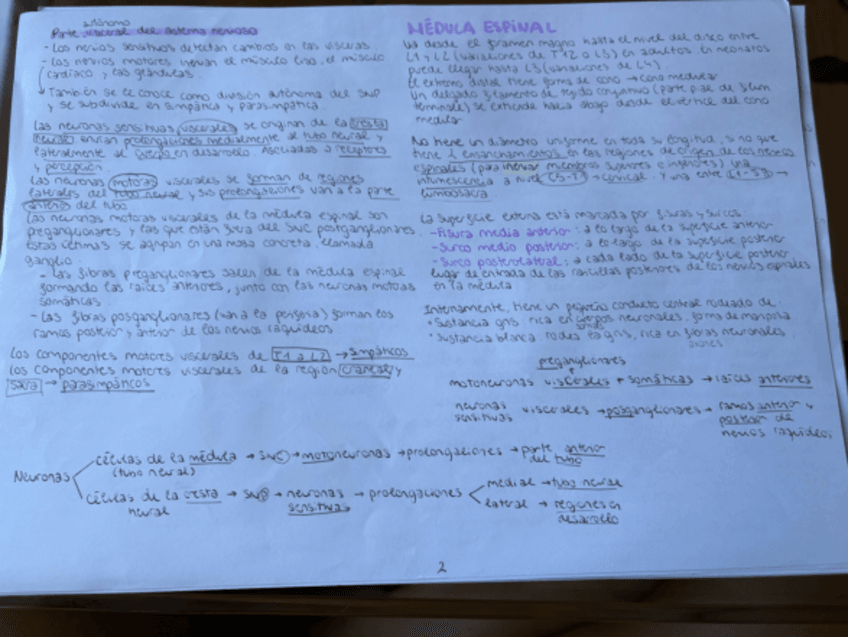 autónomo
Parte visceral del sistema nervioso
- Los nervios sensitivos detectan cambios en las vísceras
- Los nervios motores inervan el músculo liso, el músculo
cardíaco y las glándulas.
También se le conoce como división autónoma del SNP
y se subdivide en simpática y parasimpática.
Las neuronas sensitivas viscerales se originan de la cresta
neural, envían prolongaciones medialmente al tubo neural y
lateralmente al cuerpo en desarrollo. Asociadas a receptores
y percepción.
Las neuronas motoras viscerales se forman de regiones
laterales del tubo neural y sus prolongaciones van a la parte
anterior del tubo
Las neuronas motoras viscerales de la médula espinal son
preganglionares y las que están fuera del SNC postganglionares.
Estas últimas se agrupan en una masa concreta, llamada
ganglio.
- las fibras preganglionares salen de la médula espinal
formando las raíces anteriores, junto con las neuronas motoras
somáticas.
- Las fibras posganglionares (van a la periferia) forman los
ramos posterior y anterior de los nervios raquídeos
Los componentes motores viscerales de T1 a L2 → simpáticos
Los componentes motores viscerales de la región craneal y
sacra → parasimpáticos
MÉDULA ESPINAL
Va desde el foramen magno hasta el nivel del disco entre
L1 y L2 (variaciones de T12 o L3) en adultos. En neonatos
puede llegar hasta L3 (variaciones de L4).
El extremo distal tiene forma de cono → cono medular
Un delgado filamento de tejido conjuntivo (parte pial de filum
terminale) se extiende hacia abajo desde el vértice del cono
medular
No tiene un diámetro uniforme en toda su longitud, si no que
tiene 2 ensanchamientos en las regiones de origen de los nervios
espinales (para inervar miembros superiores e inferiores) una
intumescencia a nivel → cervical. Y una entre →
lumbosacra
La superficie externa está marcada por fisuras y surcos:
- Fisura media anterior: a lo largo de la superficie anterior
- Surco medio posterior: a lo largo de la superficie posterior
- Surco posterolateral: a cada lado de la superficie posterior
lugar de entrada de las raicillas posteriores de los nervios espinales
en la médula
Internamente, tiene un pequeño conducto central rodeado de:
• Sustancia gris: rica en cuerpos neuronales. forma de mariposa
• Sustancia blanca: rodea la gris, rica en fibras neuronales.
axones
preganglionares
motoneuronas viscerales + somáticas → raíces anteriores
neuronas sensitivas viscerales → posganglionares → ramos anterior y
posterior de
nervios raquídeos
Neuronas
células de la médula → SNC → motoneuronas → prolongaciones → parte anterior
(tubo neural) del tubo
células de la cresta → SNP → neuronas → prolongaciones
neural sensitivas
medial → tubo neural
lateral → regiones en
desarrollo
2